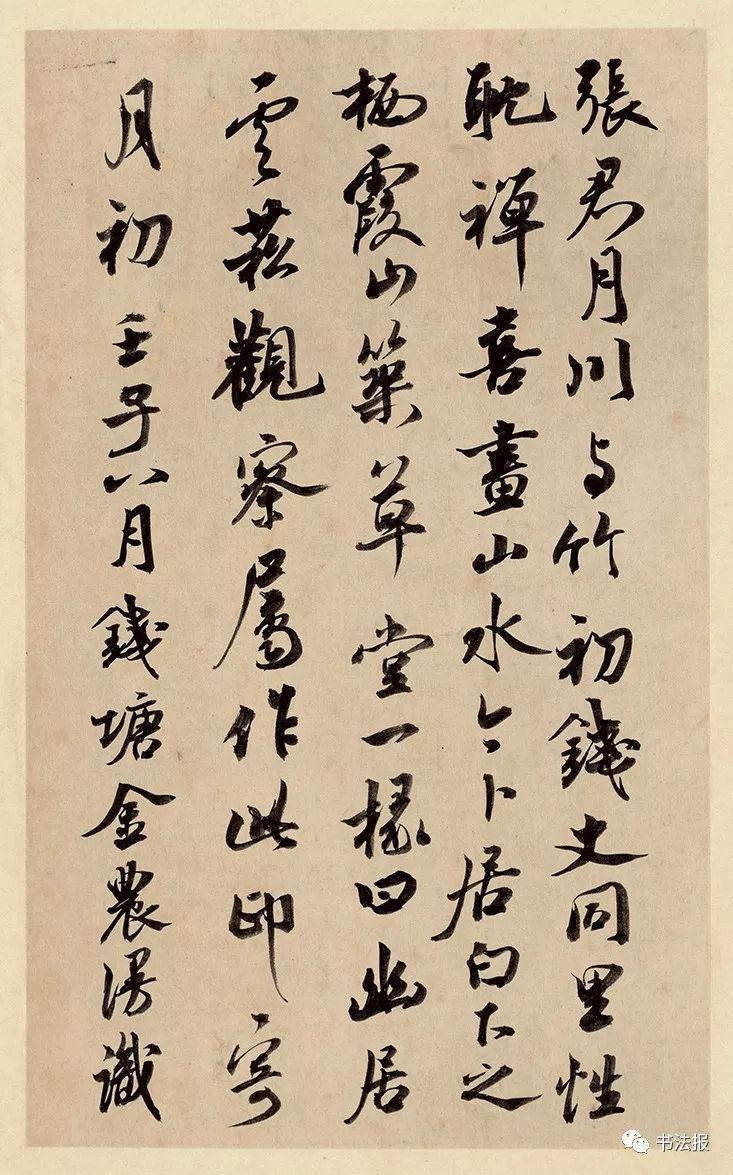 張君月川与竹初錢丈同里性
耽禪喜畫山水今卜居白下之
栖霞山築草堂一椽曰幽居
雲菘觀察屬作此印寄
月初 壬子八月錢塘金農漫識
书法报